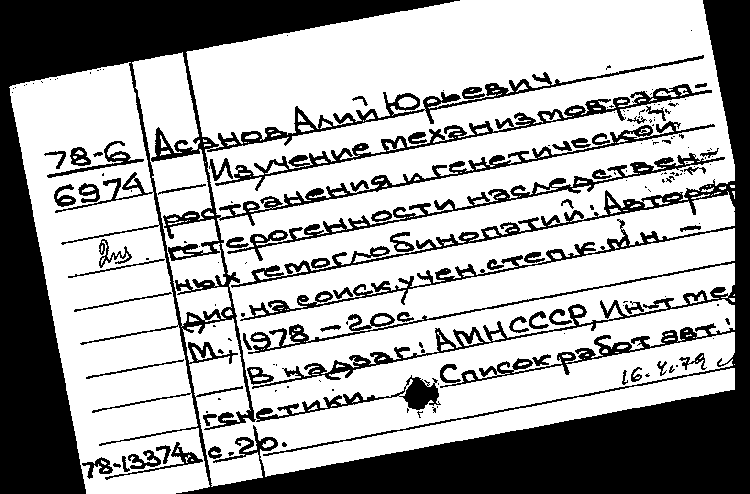 78-6 Асанов, Алий Юрьевич.
6974 Изучение механизмов расп-
ространения и генетической
гетерогенности наследствен-
2из ных гемоглобинопатий: Автореф
дис. на соиск. учен. степ. к.м.н. –
М., 1978. – 20с.
В надзаг.: АМН СССР, Ин-т ме
генетики. Список работ авт.:
с. 20. 16.4.79
78-13374а